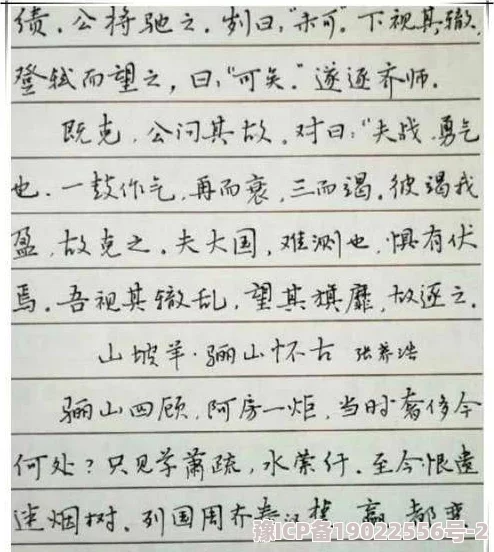 绩。公将驰之。刿曰:“未可”。下视其辙,
登轼而望之,曰:“可矣。”遂逐齐师。
既克,公问其故。对曰:“夫战,勇气
也。一鼓作气,再而衰,三而竭。彼竭我
盈,故克之。夫大国,难测也,惧有伏
焉。吾视其辙乱,望其旗靡,故逐之。
山坡羊·骊山怀古 张养浩
骊山四顾,阿房一炬,当时奢侈今
何处?只见草萧疏,水萦纡。至今恨遗
迷烟树。列国周齐秦汉楚 赢,都变
豫ICP备19022556号-2